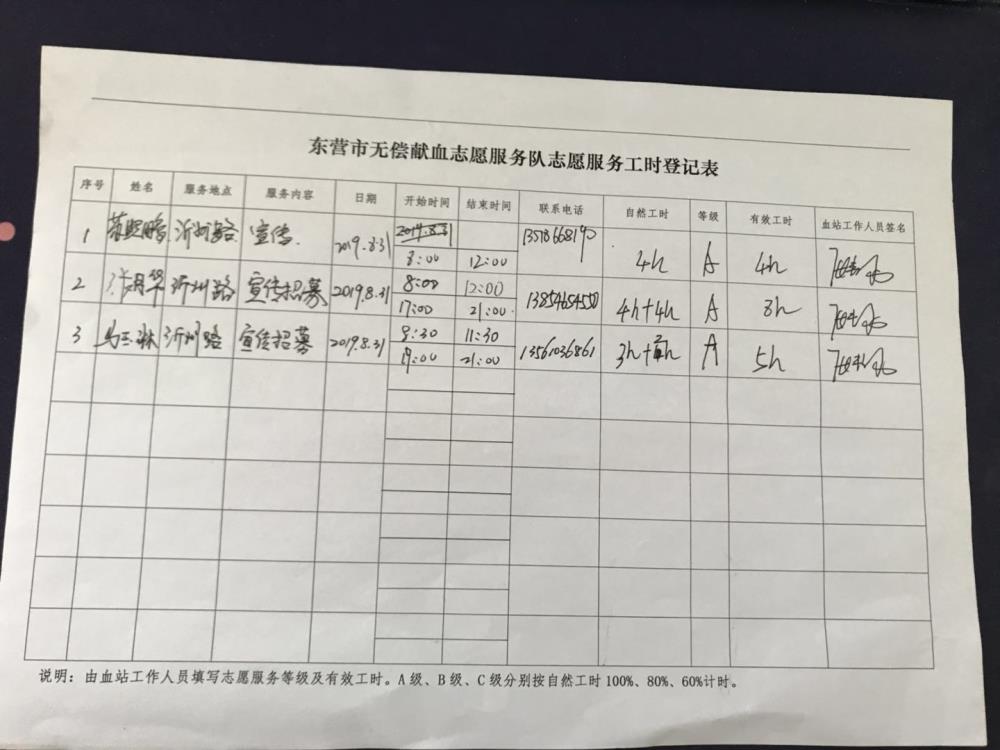 东营市无偿献血志愿服务队志愿服务工时登记表
序号 姓名 服务地点 服务内容 日期 开始时间 结束时间 联系电话 自然工时 等级 有效工时 血站工作人员签名
1 沂州路 宣传 2019.8.31 2019.8.31 8:00 12:00 13518668190 4h A 4h
2 沂州路 宣传招募 2019.8.31 8:00 12:00 13854654550 4h+4h A 8h
17:00 21:00
3 马玉琳 沂州路 宣传招募 2019.8.31 11:30 13561036861 3h+ h A 5h
21:00
说明:由血站工作人员填写志愿服务等级及有效工时。A级、B级、C级分别按自然工时100%、80%、60%计时。